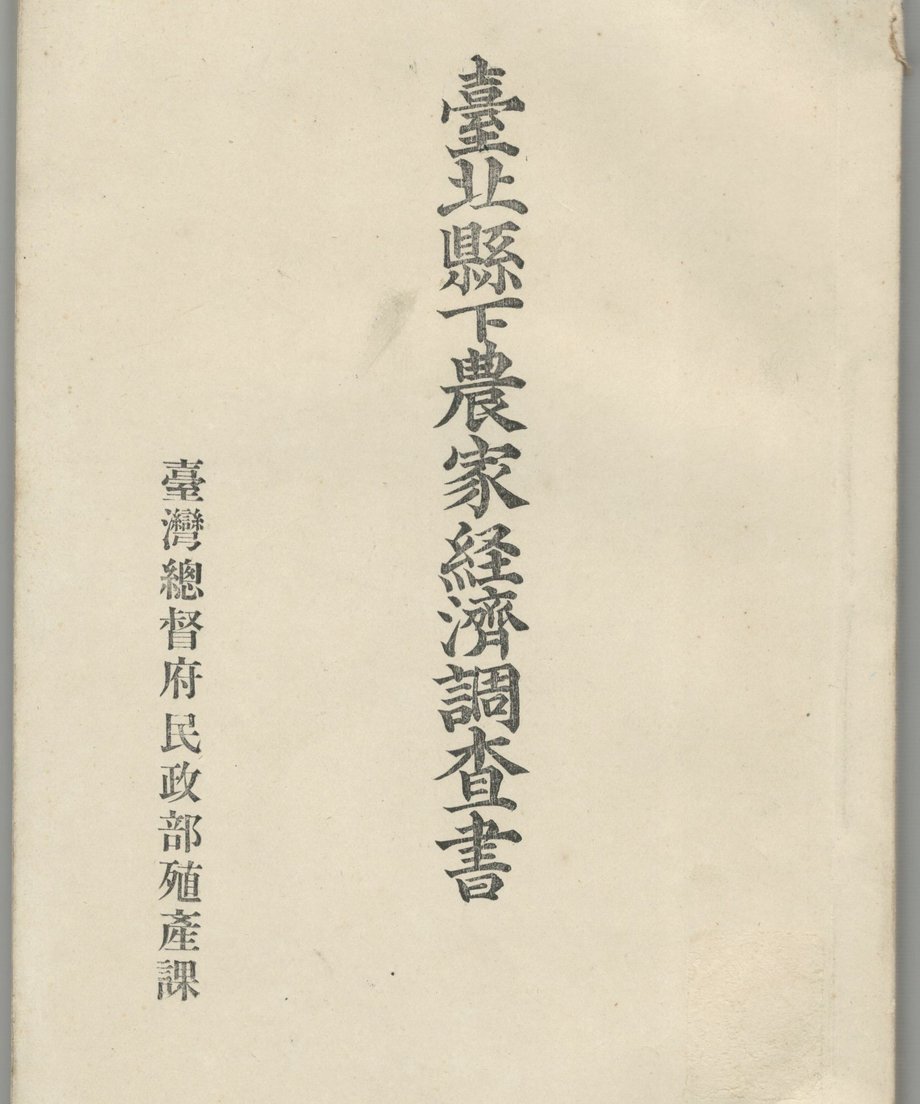 臺北縣下農家経濟調查書
臺灣總督府民政部殖產課